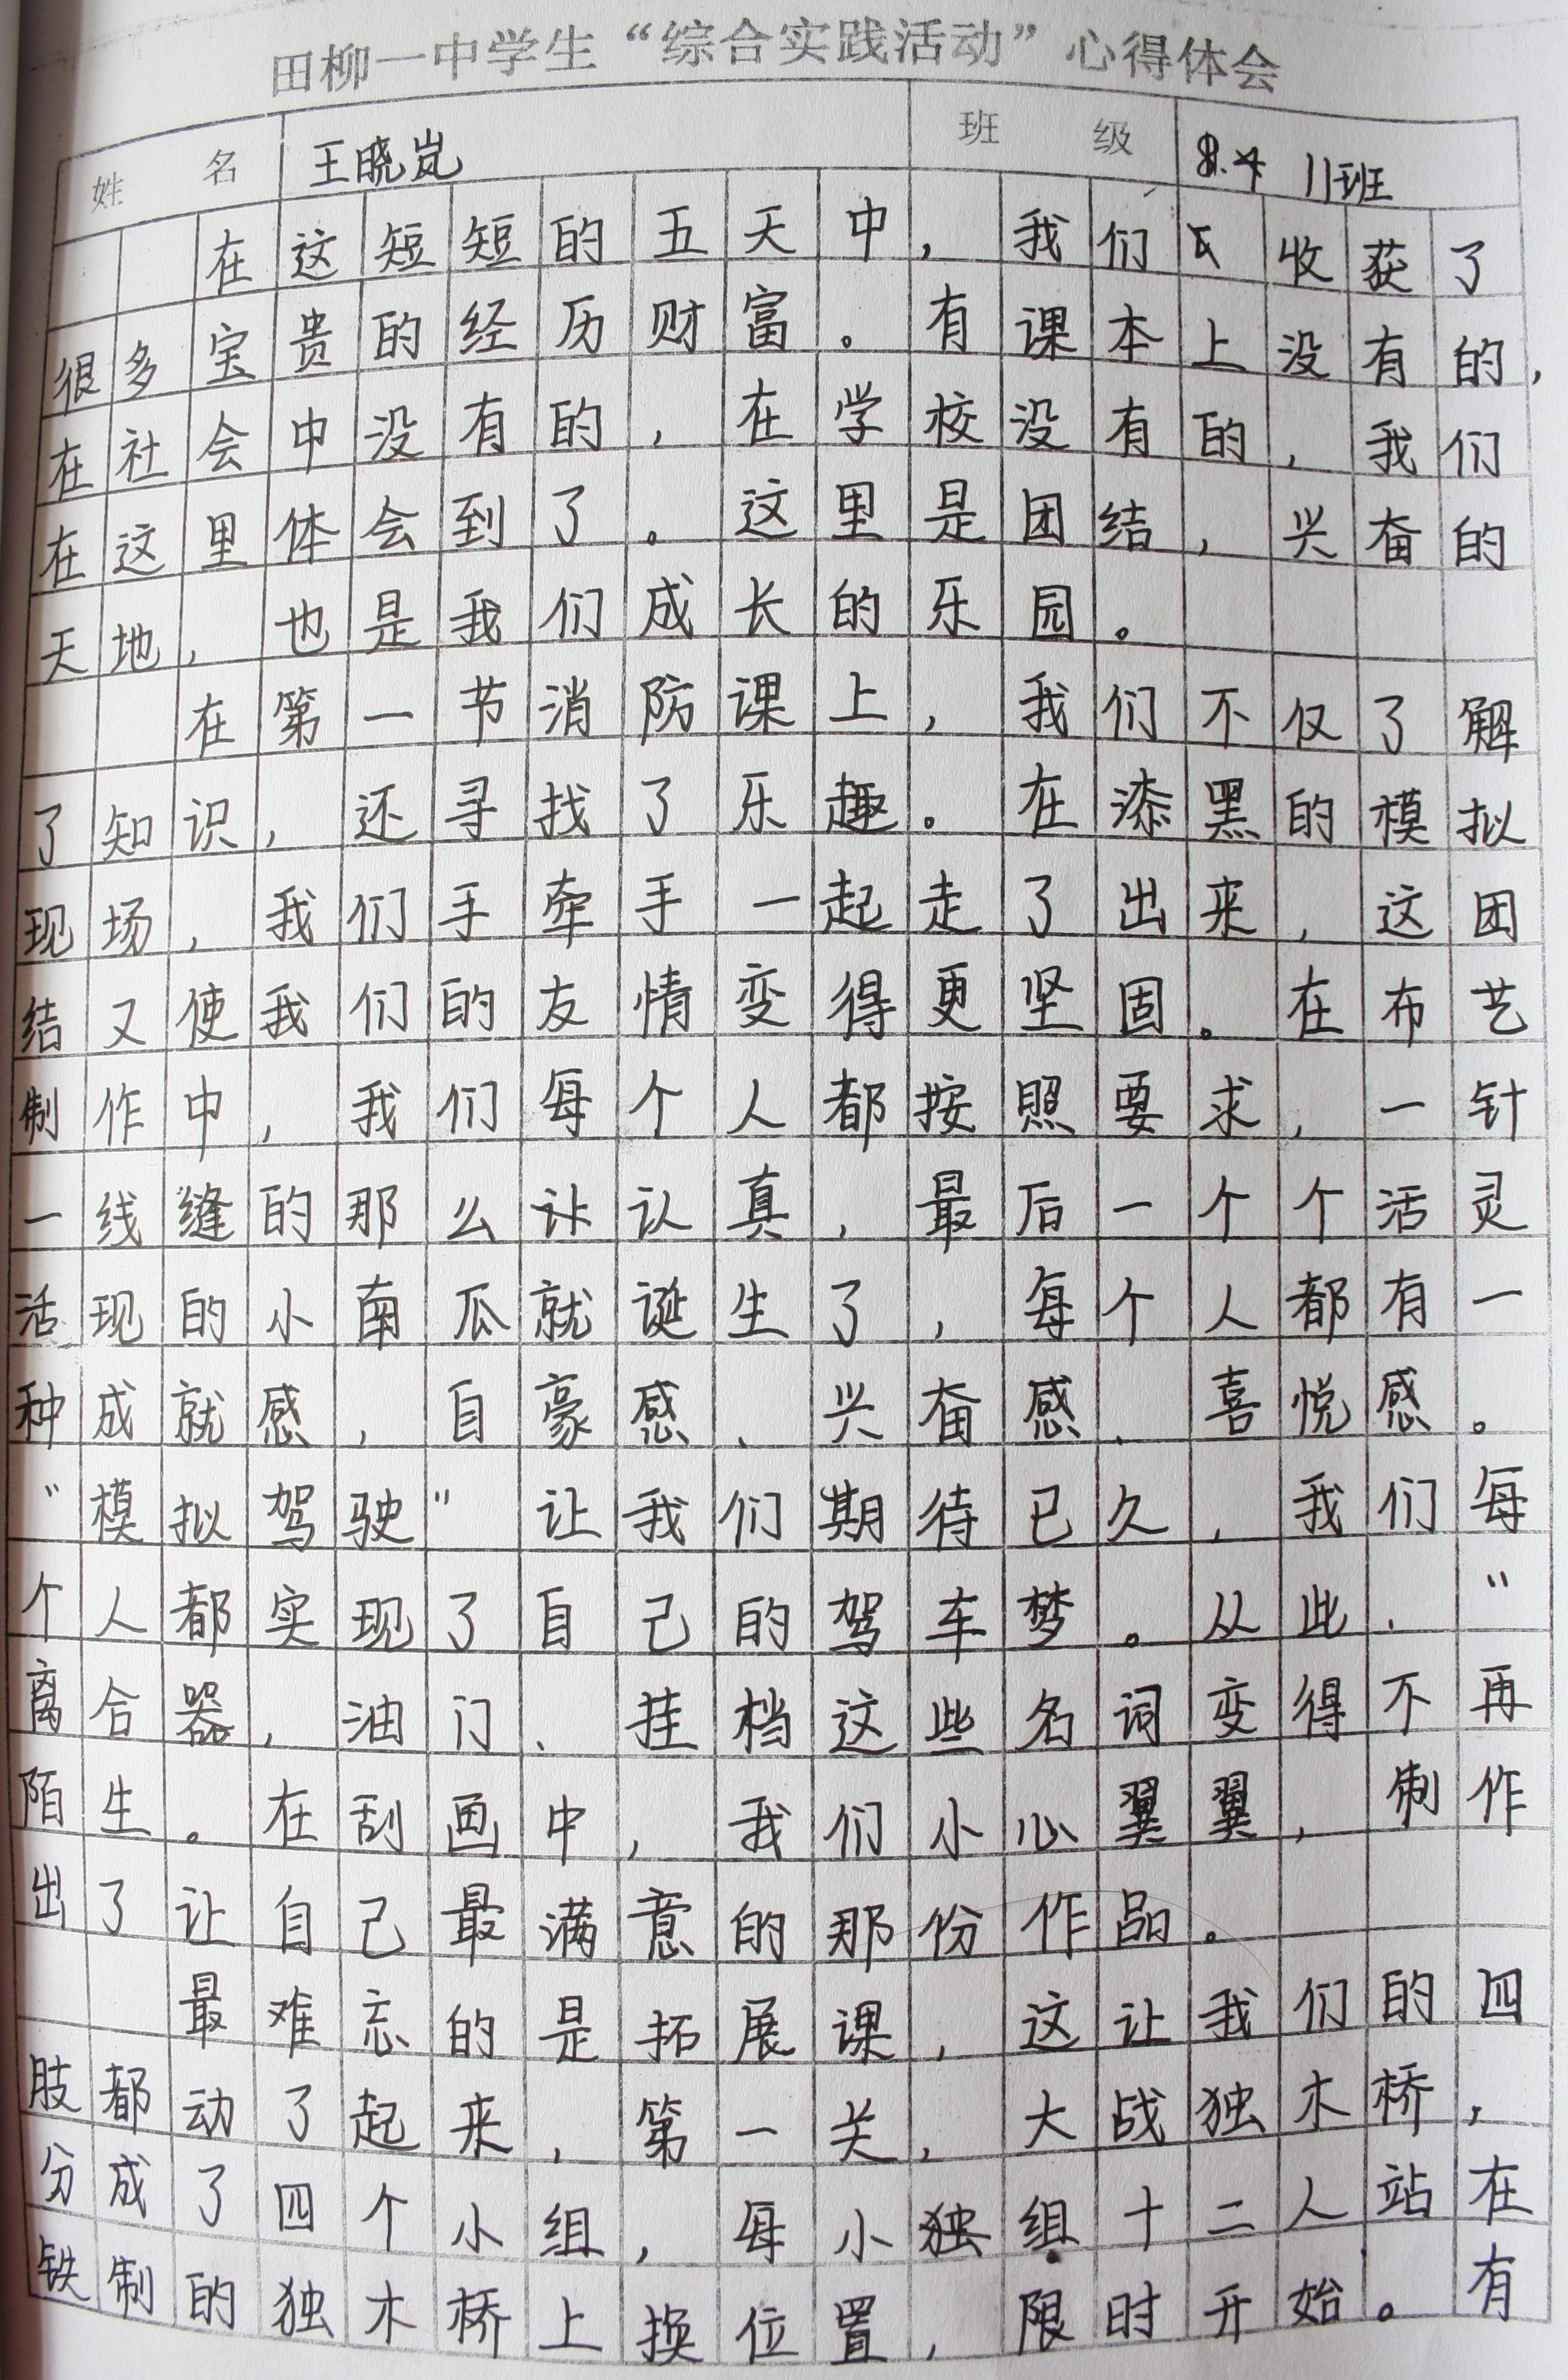 田柳一中学生“综合实践活动”心得体会
姓名 王晓岚 班级 8.4 11班
在这短短的五天中，我们收获了
很多宝贵的经历财富。有课本上没有的，
在社会中没有的，在学校没有的，我们
在这里体会到了。这里是团结，兴奋的
天地，也是我们成长的乐园。
在第一节消防课上，我们不仅了解
了知识，还寻找了乐趣。在漆黑的模拟
现场，我们手牵手一起走了出来，这团
结又使我们的友情变得更坚固。在布艺
制作中，我们每个人都按照要求，一针
一线缝的那么认真，最后一个个活灵
活现的小南瓜就诞生了，每个人都有一
种成就感，自豪感、兴奋感、喜悦感。
“模拟驾驶”让我们期待已久，我们每
个人都实现了自己的驾车梦。从此，“
离合器，油门、挂档这些名词变得不再
陌生。在刮画中，我们小心翼翼，制作
出了让自己最满意的那份作品。
最难忘的是拓展课，这让我们的四
肢都动了起来，第一关，大战独木桥，
分成了四个小组，每小组十二人站在
铁制的独木桥上换位置，限时开始。有